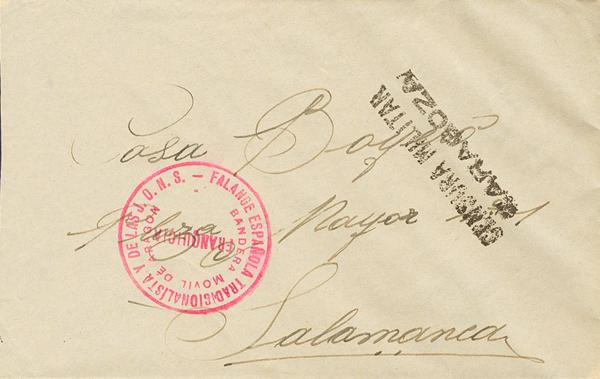 CENSURA MILITAR
ZARAGOZA
Casa
Plaza Mayor
Salamanca
FALANGE ESPAÑOLA TRADICIONALISTA Y DE LAS J. O. N. S. —
BANDERA MOVIL DE ARAGON
FRANQUICIA